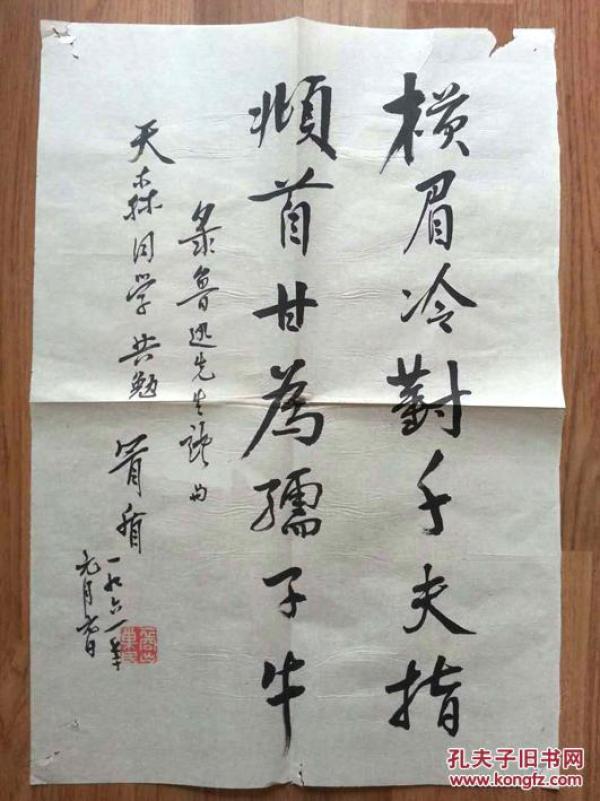 横眉冷對千夫指
頫首甘為孺子牛
录魯迅先生詩句
天森同学共勉
盾
一九六一年
元月
孔夫子旧书网
www.kongfz.com